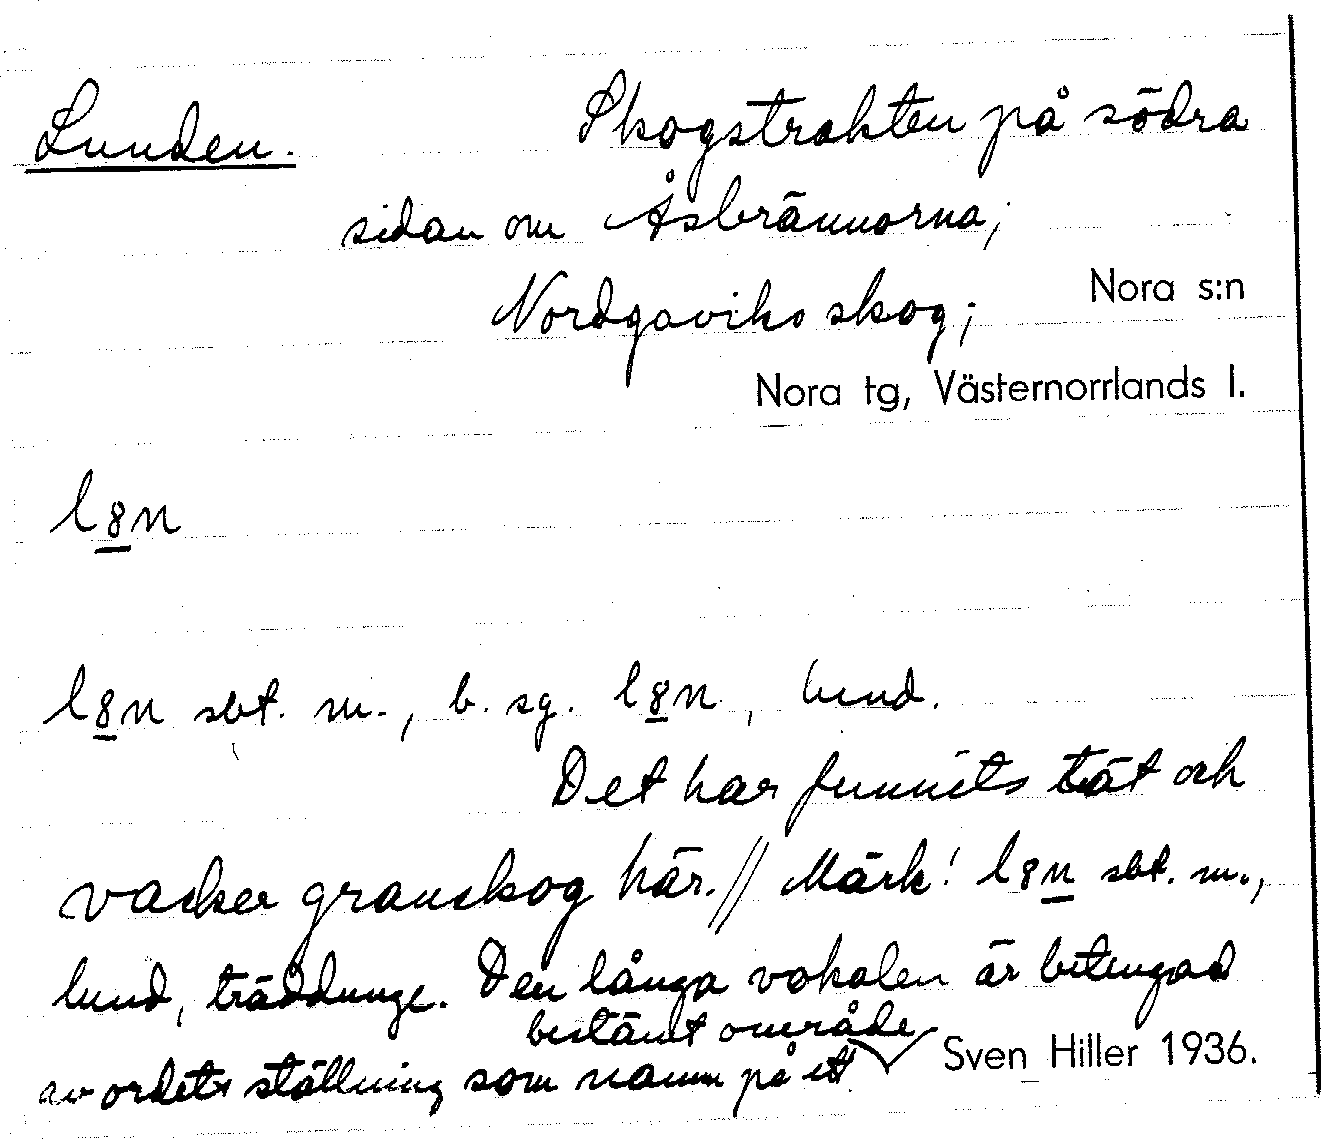 Lunden. Skogstrakten på södra
sidan om Åsbrännorna;
Nordgaviks skog; Nora s:n
Nora tg, Västernorrlands l.
l8n
l8n sbt. m., b. sg. l8n, lund.
Det har funnits tät och
vacker granskog här. // Märk! l8n sbt. m.,
lund, träddunge. Den långa vokalen är betingad
av ordets ställning som namn på ett bestämt område
Sven Hiller 1936.